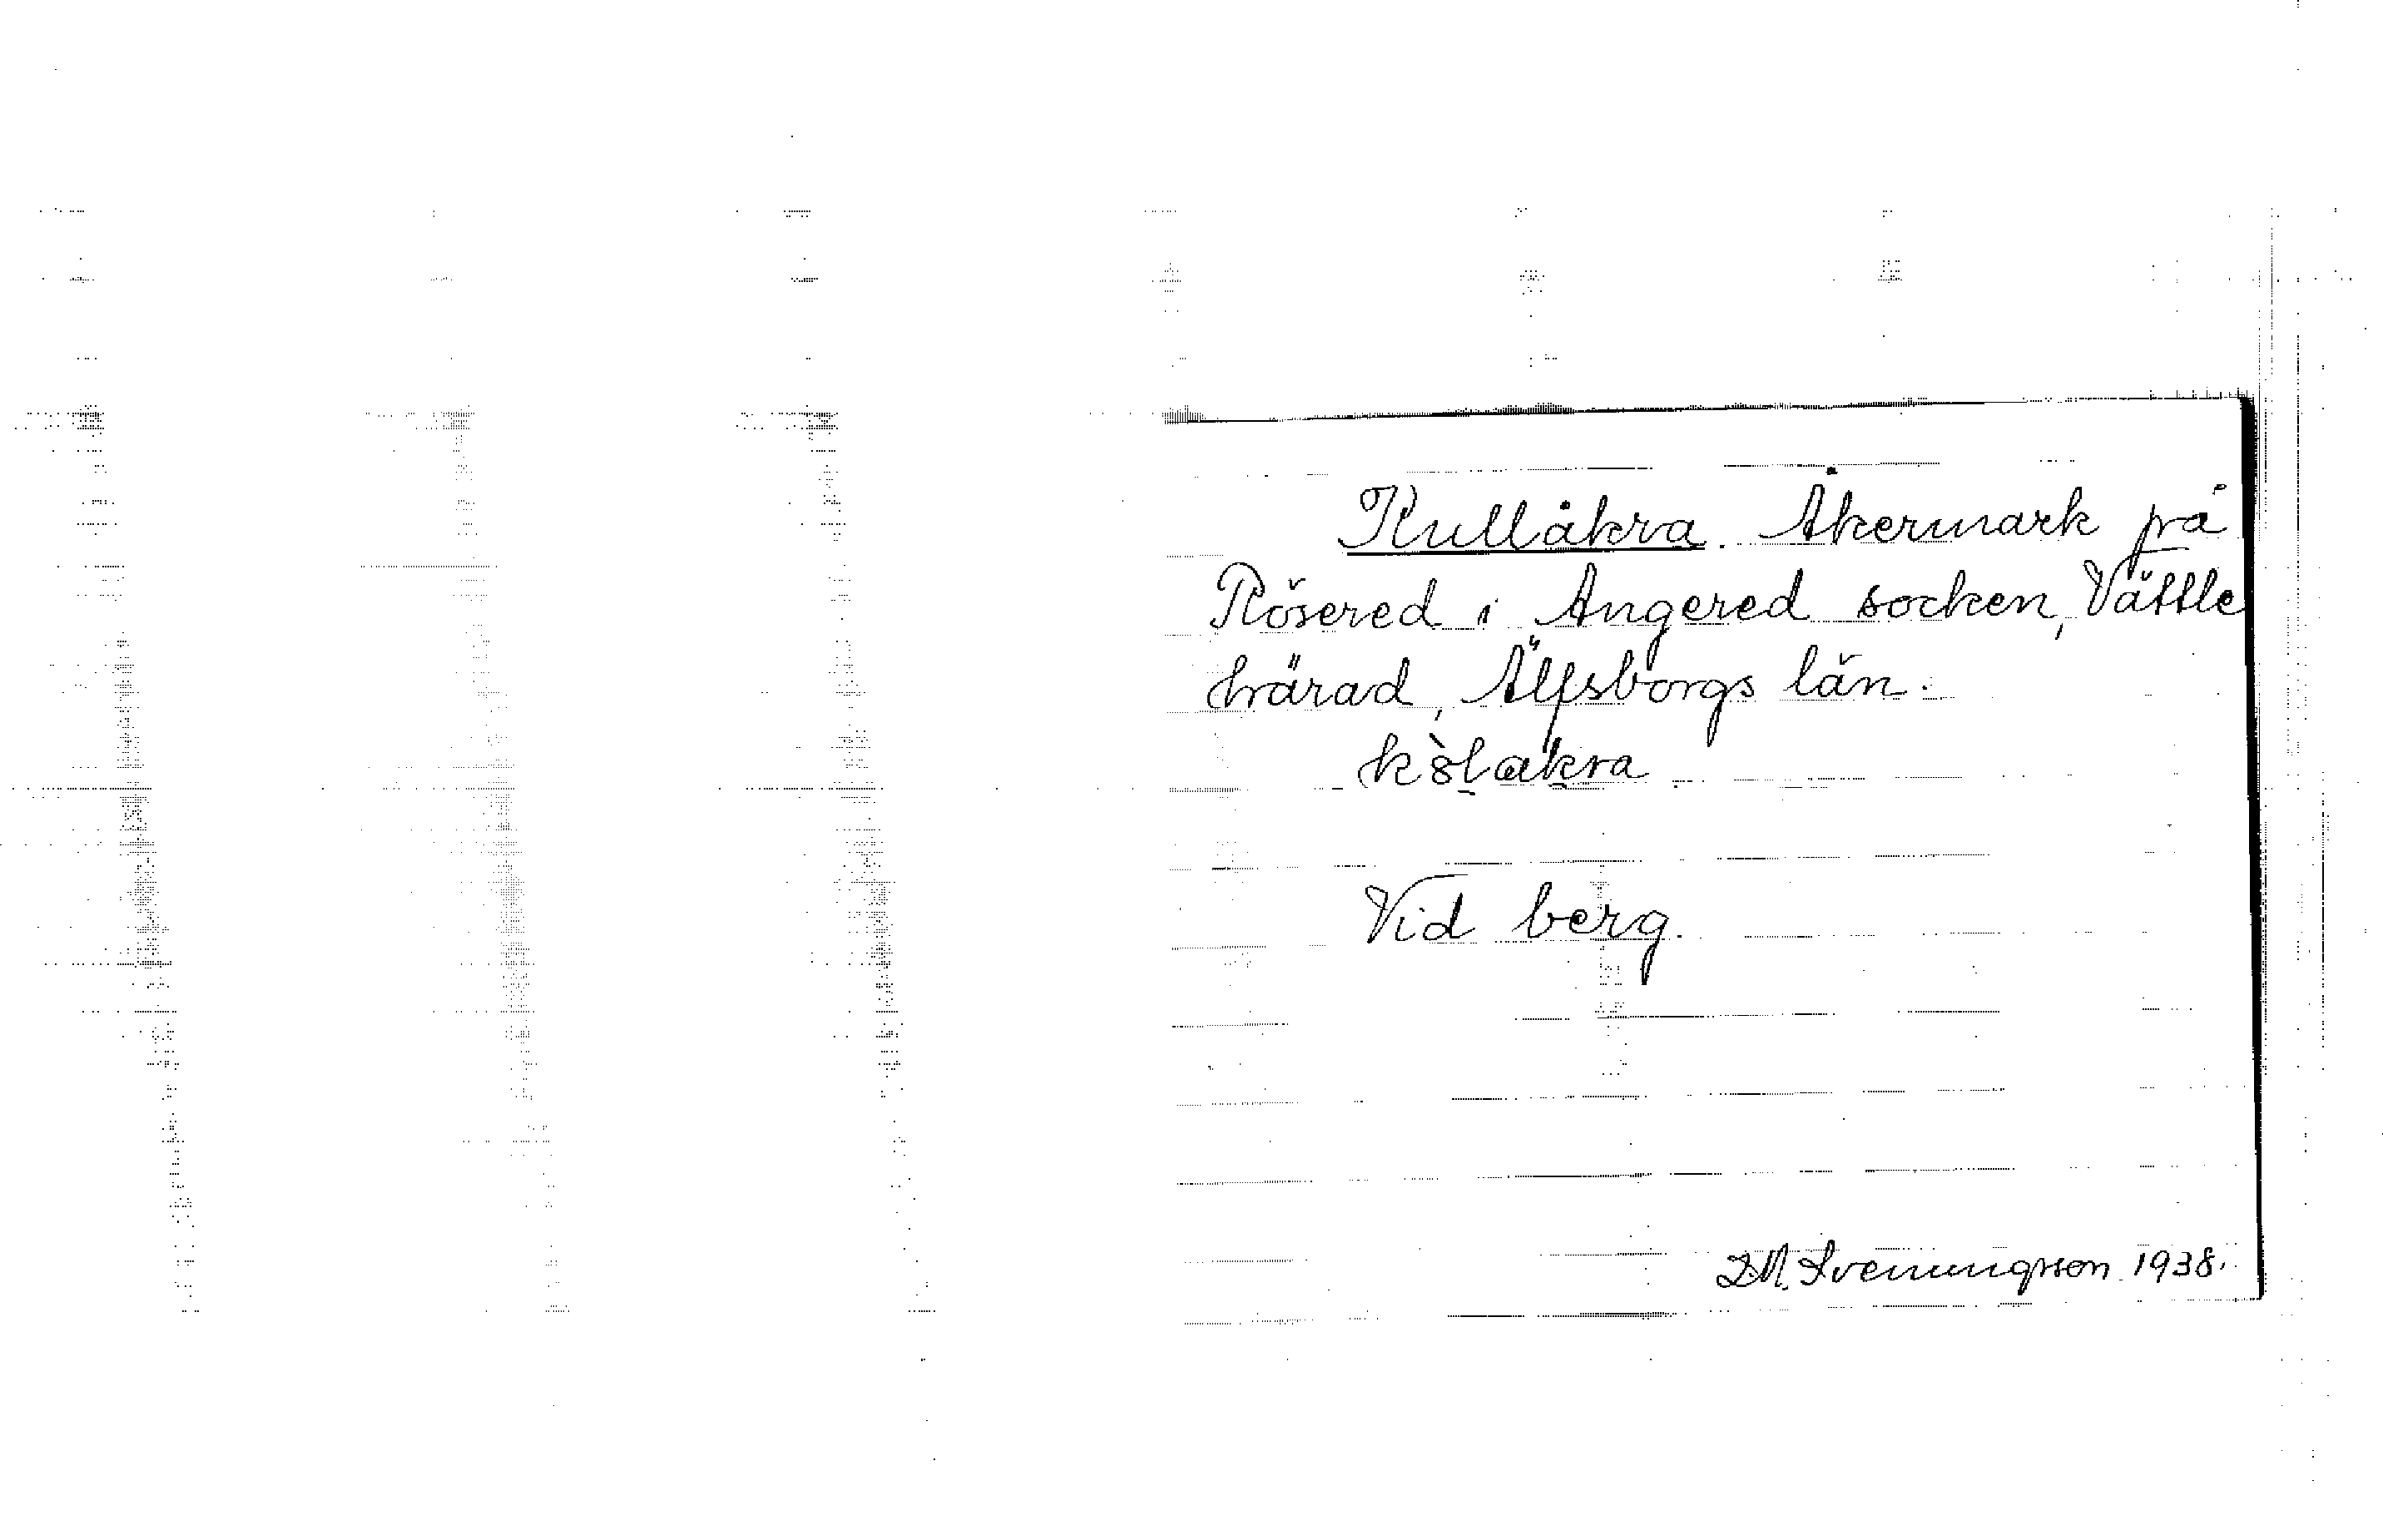 Kullåkra. Åkermark på
Rösered i Angered socken, Vättle
härad, Älfsborgs län.
Vid berg.
Svenungsson 1938.